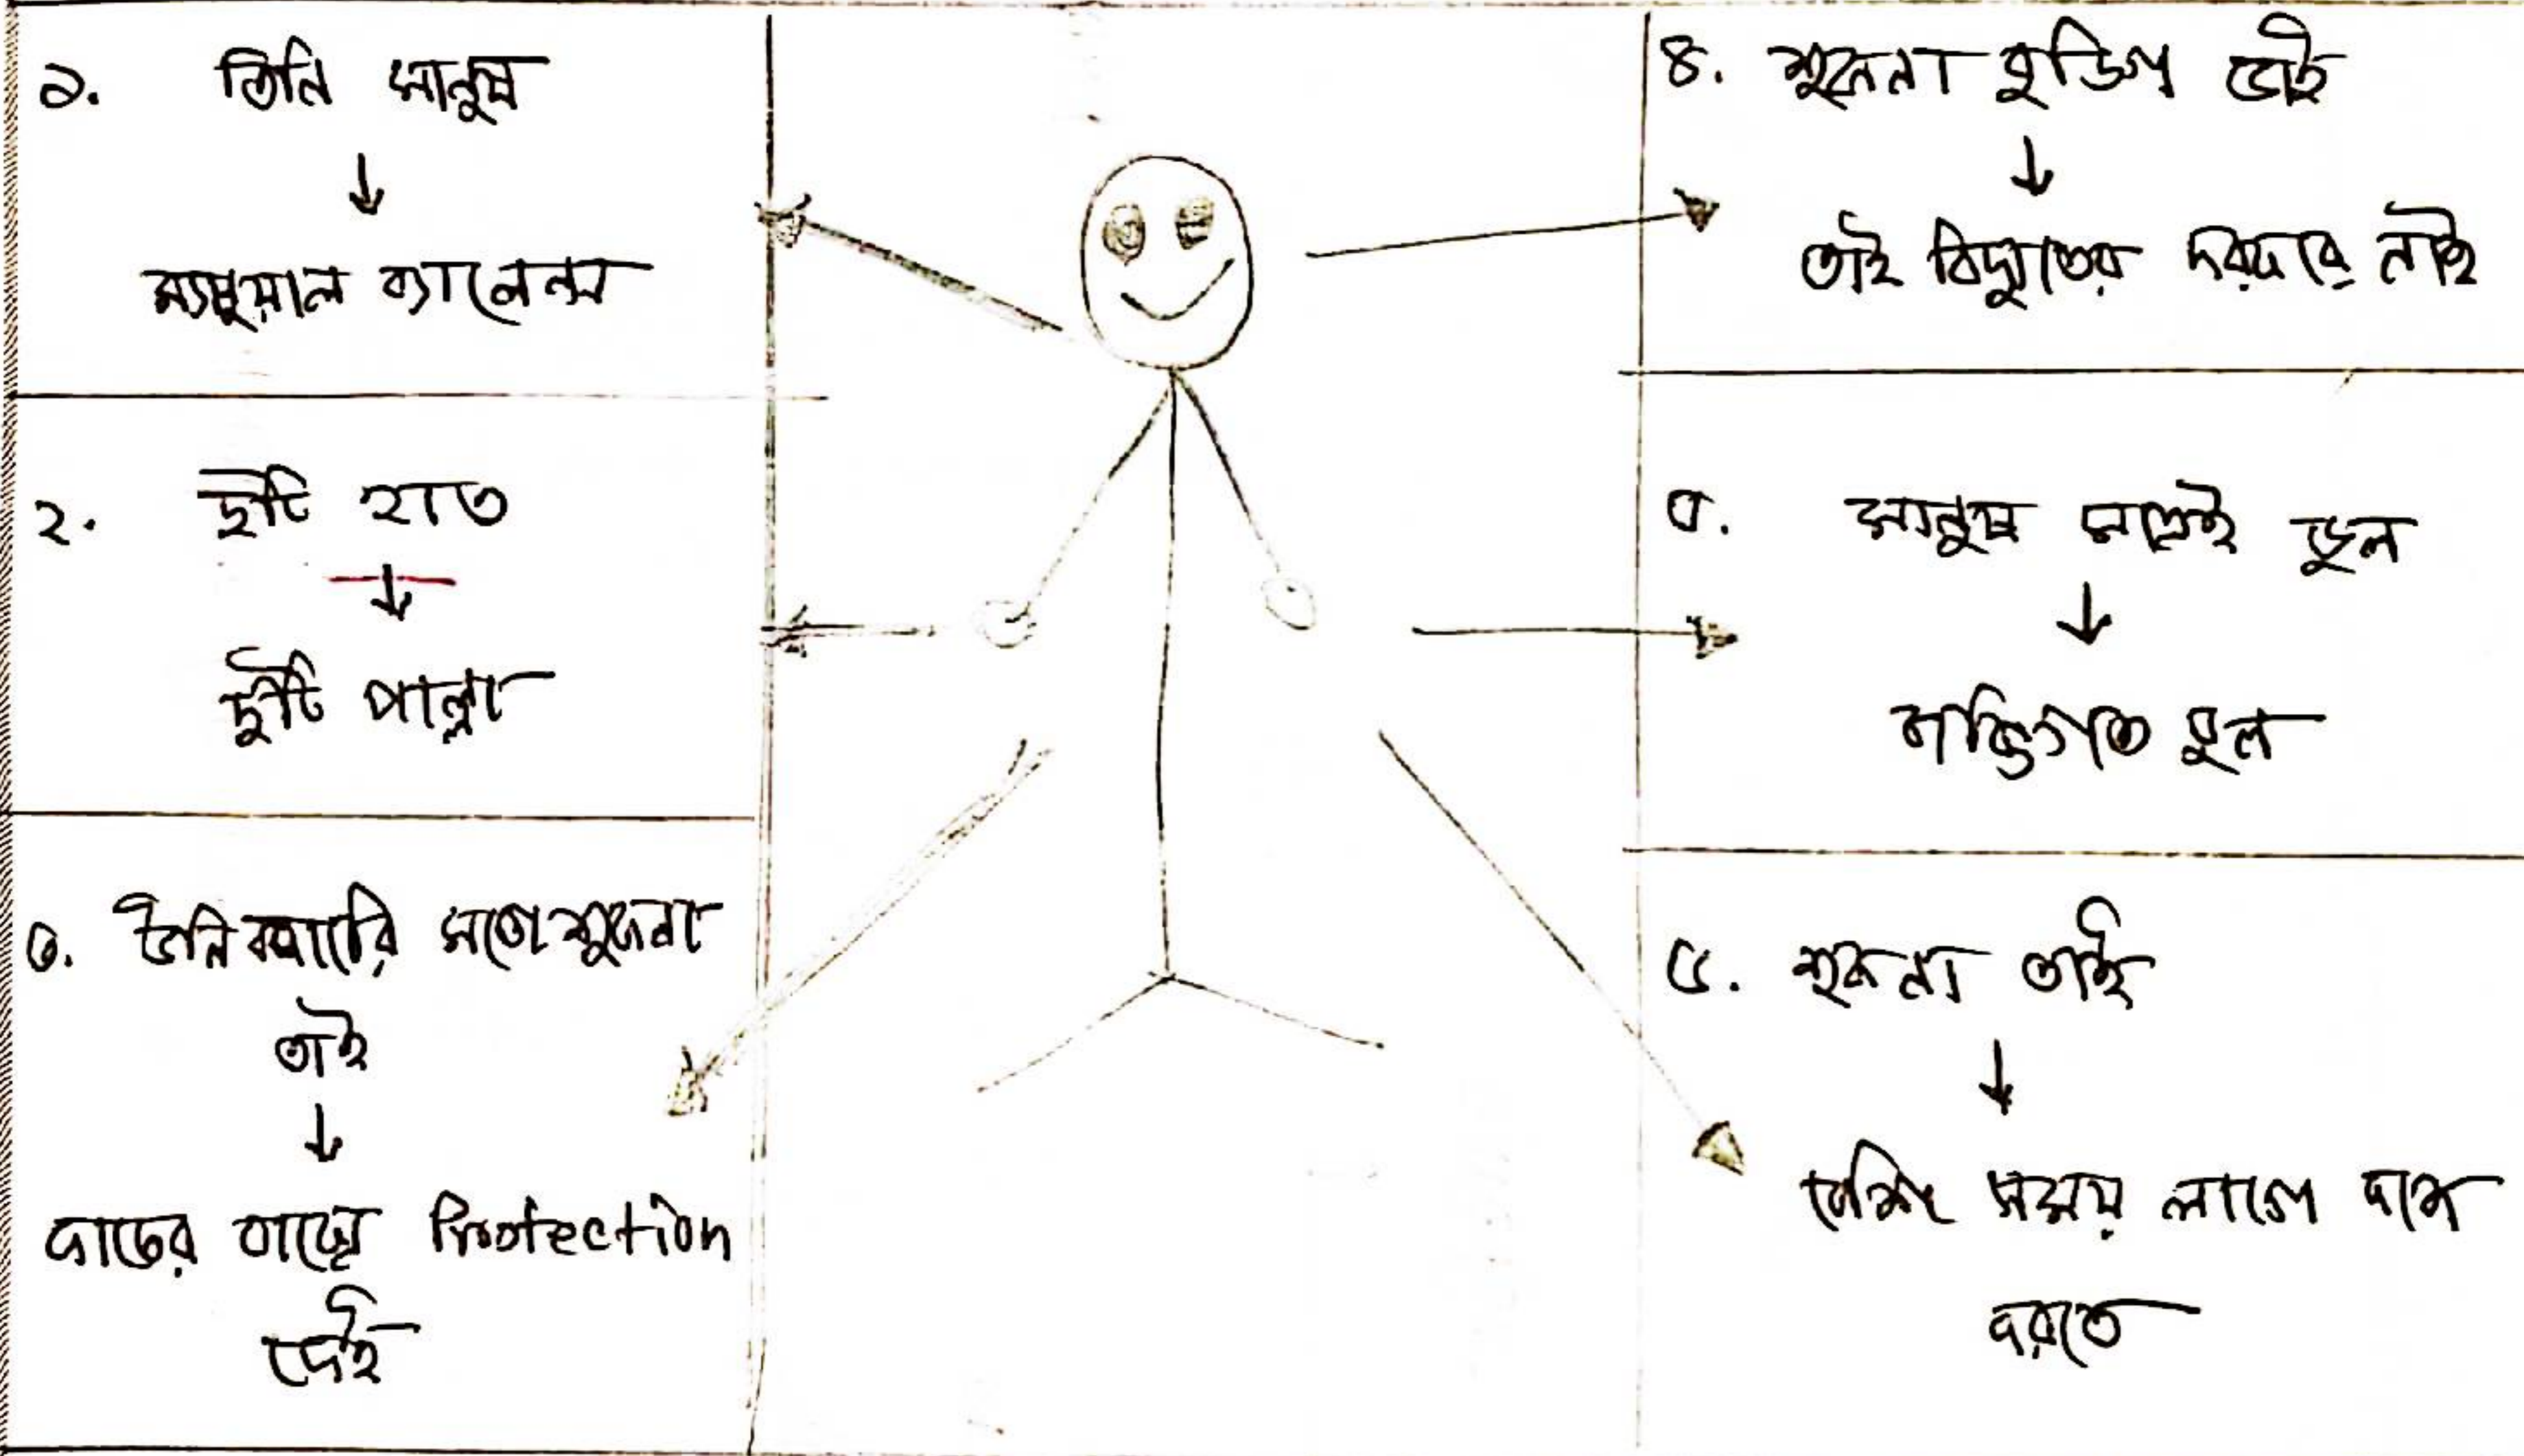 ১. তিনি মানুষ
↓
ম্যানুয়াল ব্যালেন্স
২. দুটি হাত
↓
দুটি পাল্লা
৩. উনি শুকনা
তাই
↓
কাচের বাক্সে Protection
দেই
৪. শুকনা তাই
↓
তাই বিদ্যুতের দরকার নাই
মানুষ মাত্রই ভুল
↓
ব্যক্তিগত ভুল
৫. শুকনা তাই
↓
বেশি সময় লাগে কাজ
করতে